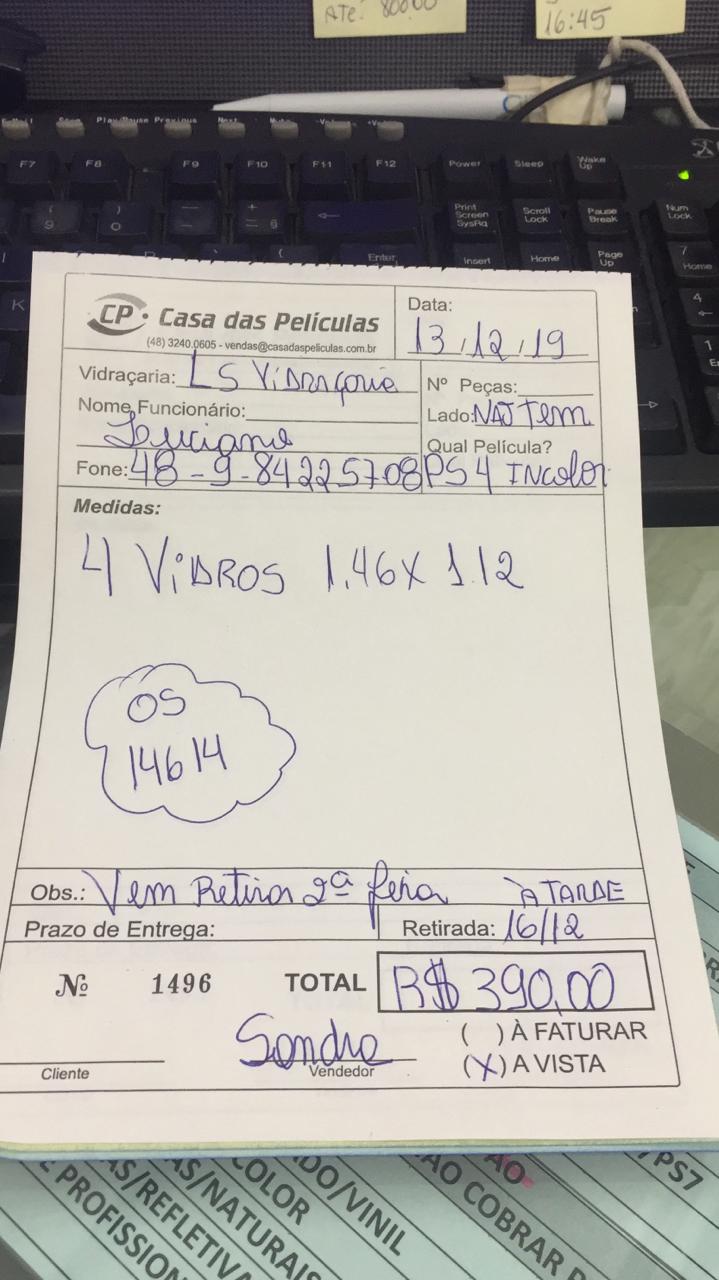 ATé: 80000
16:45
Play/Pause Previous Next
F7 F8 F9 F10 F11 F12 Power Sleep Wake Up
Print Screen SysRq Scroll Lock Pause Break Num Lock
Enter Insert Home Page Up 7 Home
K 4
1
CP. Casa das Películas
(48) 3240.0605 - vendas@casadaspeliculas.com.br
Data:
13/12/19
Vidraçaria: LS ViDRAÇaria
Nº Peças:
Nome Funcionário:
Luciano
Lado: NÃO Tem
Qual Película?
Fone: 48-9-84225708
PS4 INcolor
Medidas:
4 ViDROS 1.46X 1.12
OS
14614
Obs.: Vem Retirar 2ª feira À TARDE
Prazo de Entrega:
Retirada: 16/12
Nº 1496 TOTAL R$ 390,00
( ) À FATURAR
(X) A VISTA
Sandra
Cliente
Vendedor
/PS7
ÃO COBRAR
DO/VINIL
COLOR
AS/NATURAIS
AS/REFLETIVA
E PROFISSION